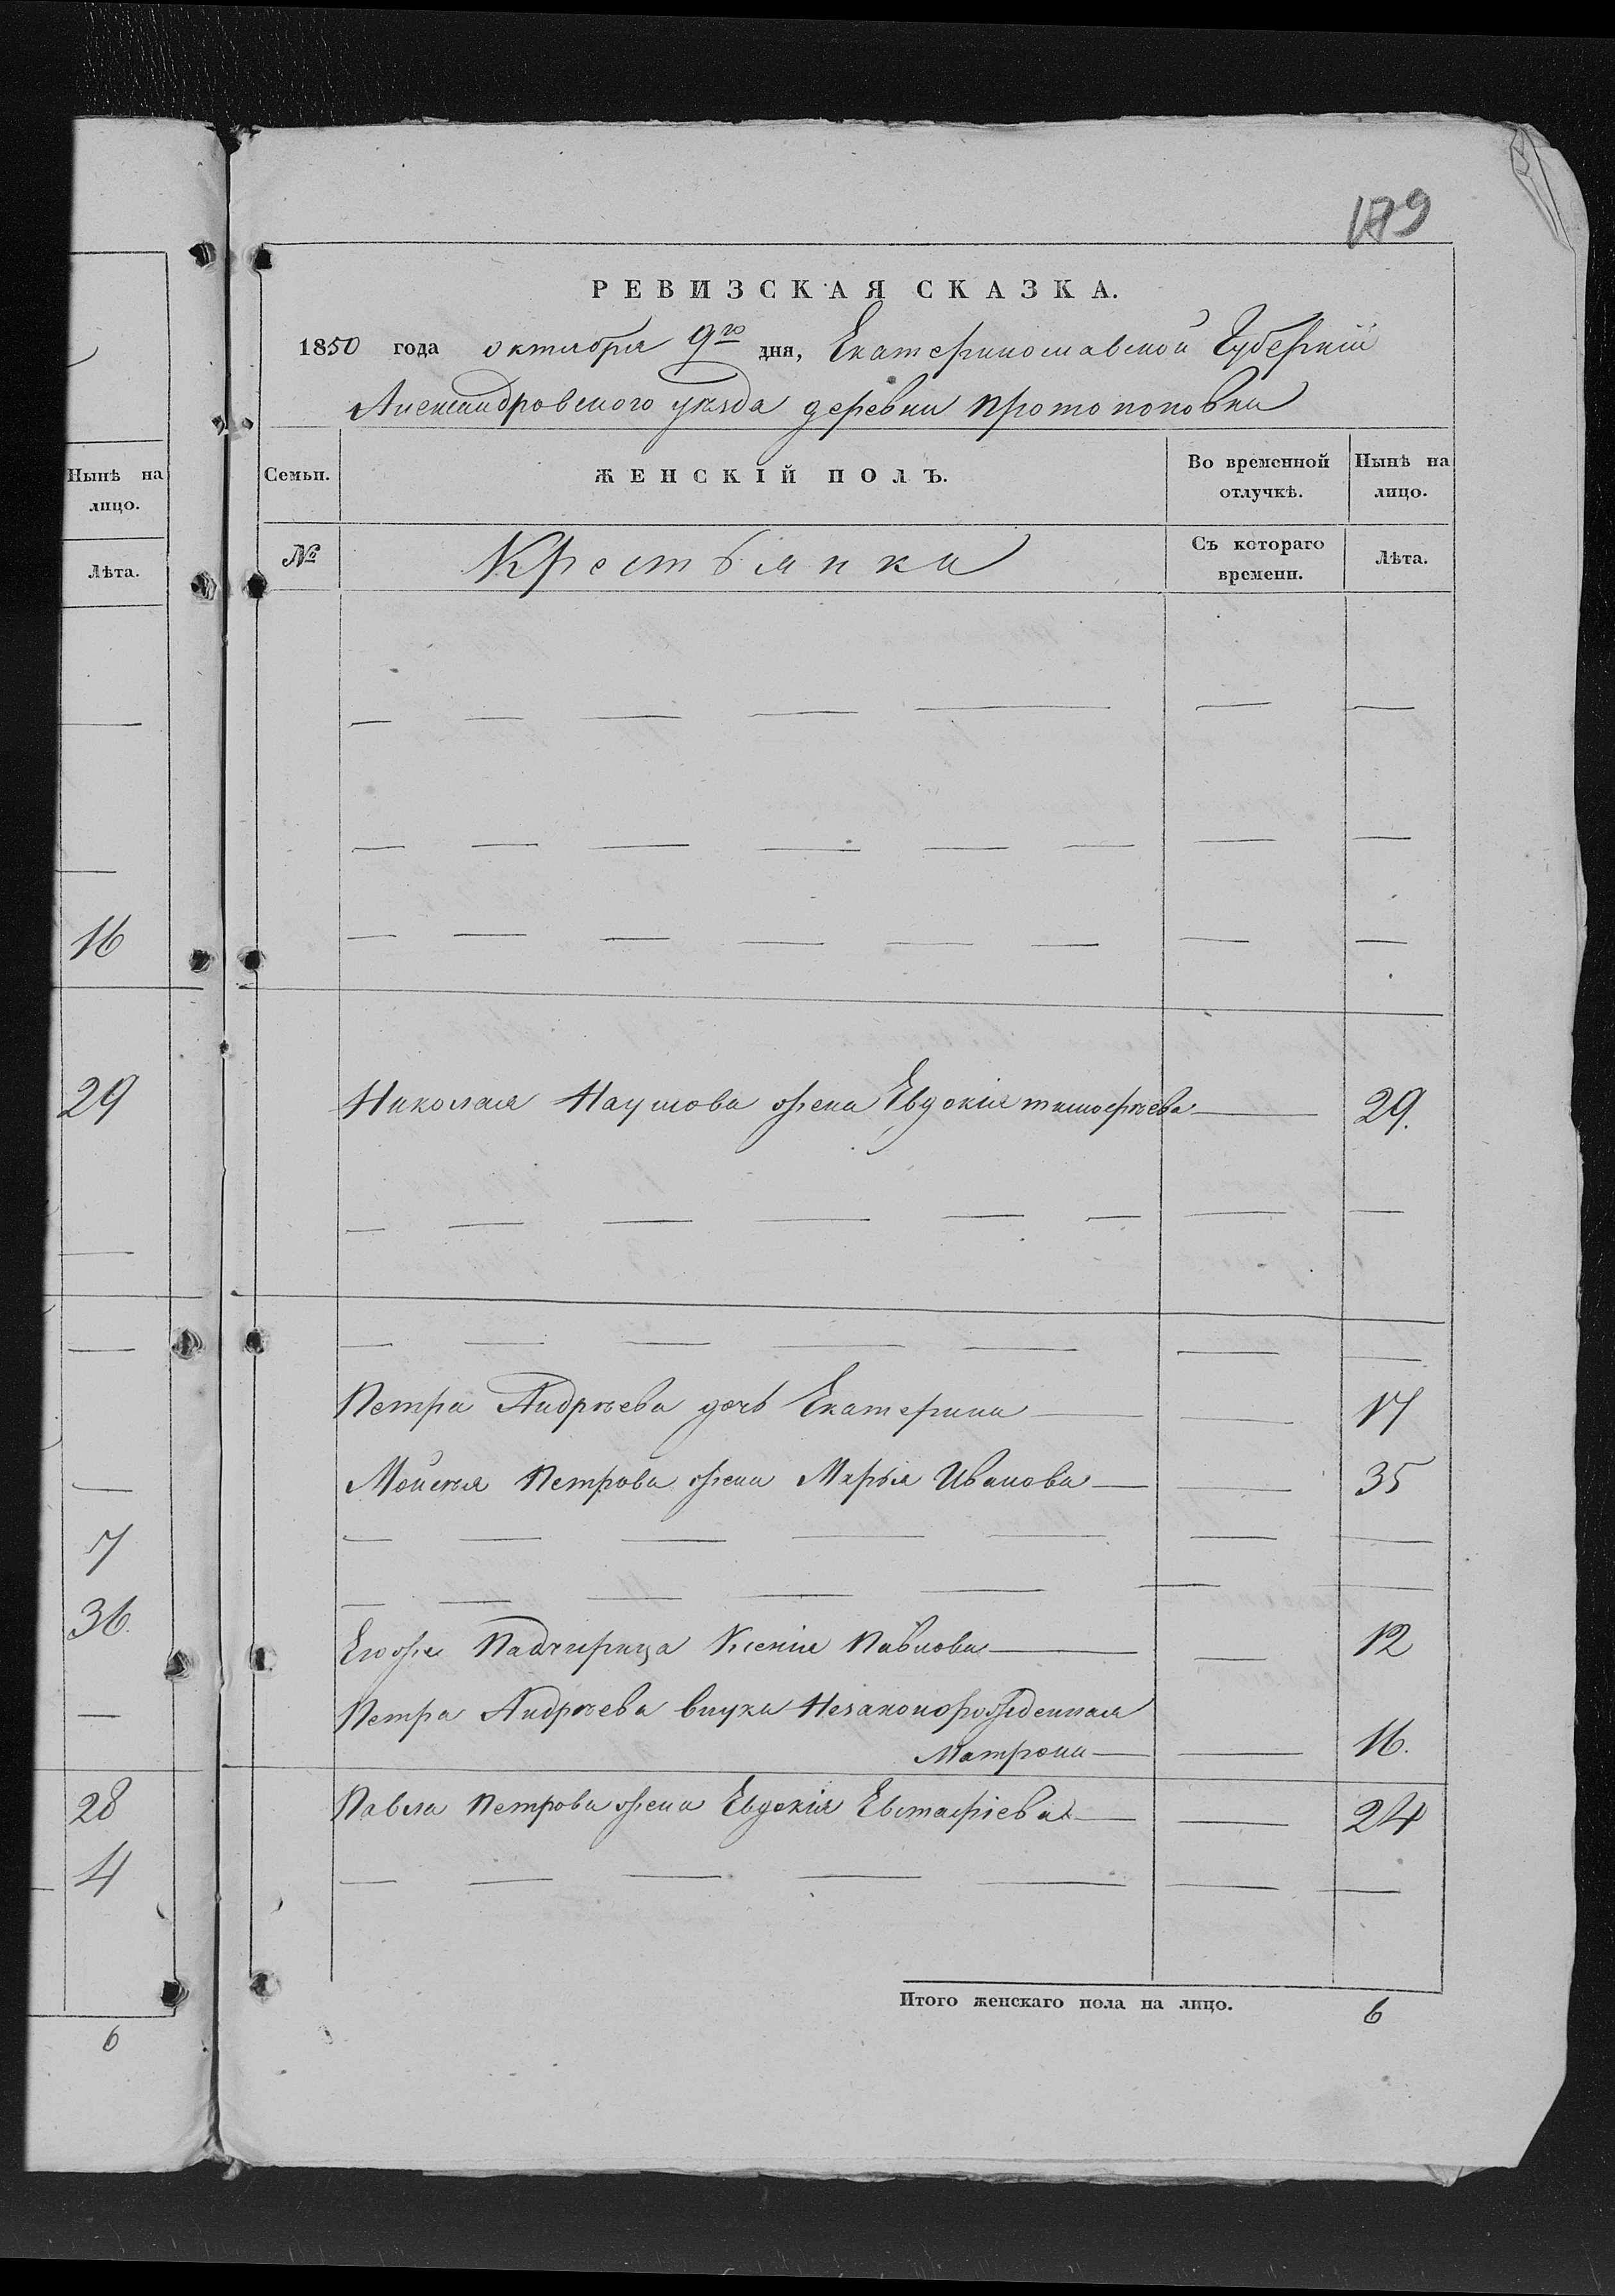 179
РЕВИЗСКАЯ СКАЗКА.
1850 года октября 9го дня, Екатеринославской Губерніи
Александровского уѣзда деревни Протопоповки
Нынѣ на лицо.
Лѣта.
16
29
7
36.
28
4
6
Семьи. ЖЕНСКІЙ ПОЛЪ. Во временной отлучкѣ. Нынѣ на лицо.
№ Крестьянка Съ котораго времени. Лѣта.
Николая Наумова жена Евдокія тимофѣева 29.
Петра Андрѣева дочь Екатерина 17
Мойсея Петрова жена Марья Иванова 35
Егоже Падчерица Ксенія Павлова 12
Петра Андрѣева внука Незаконорожденная
Матрона 16.
Павла Петрова жена Евдокія Евстафіева 24
Итого женскаго пола на лицо. 6